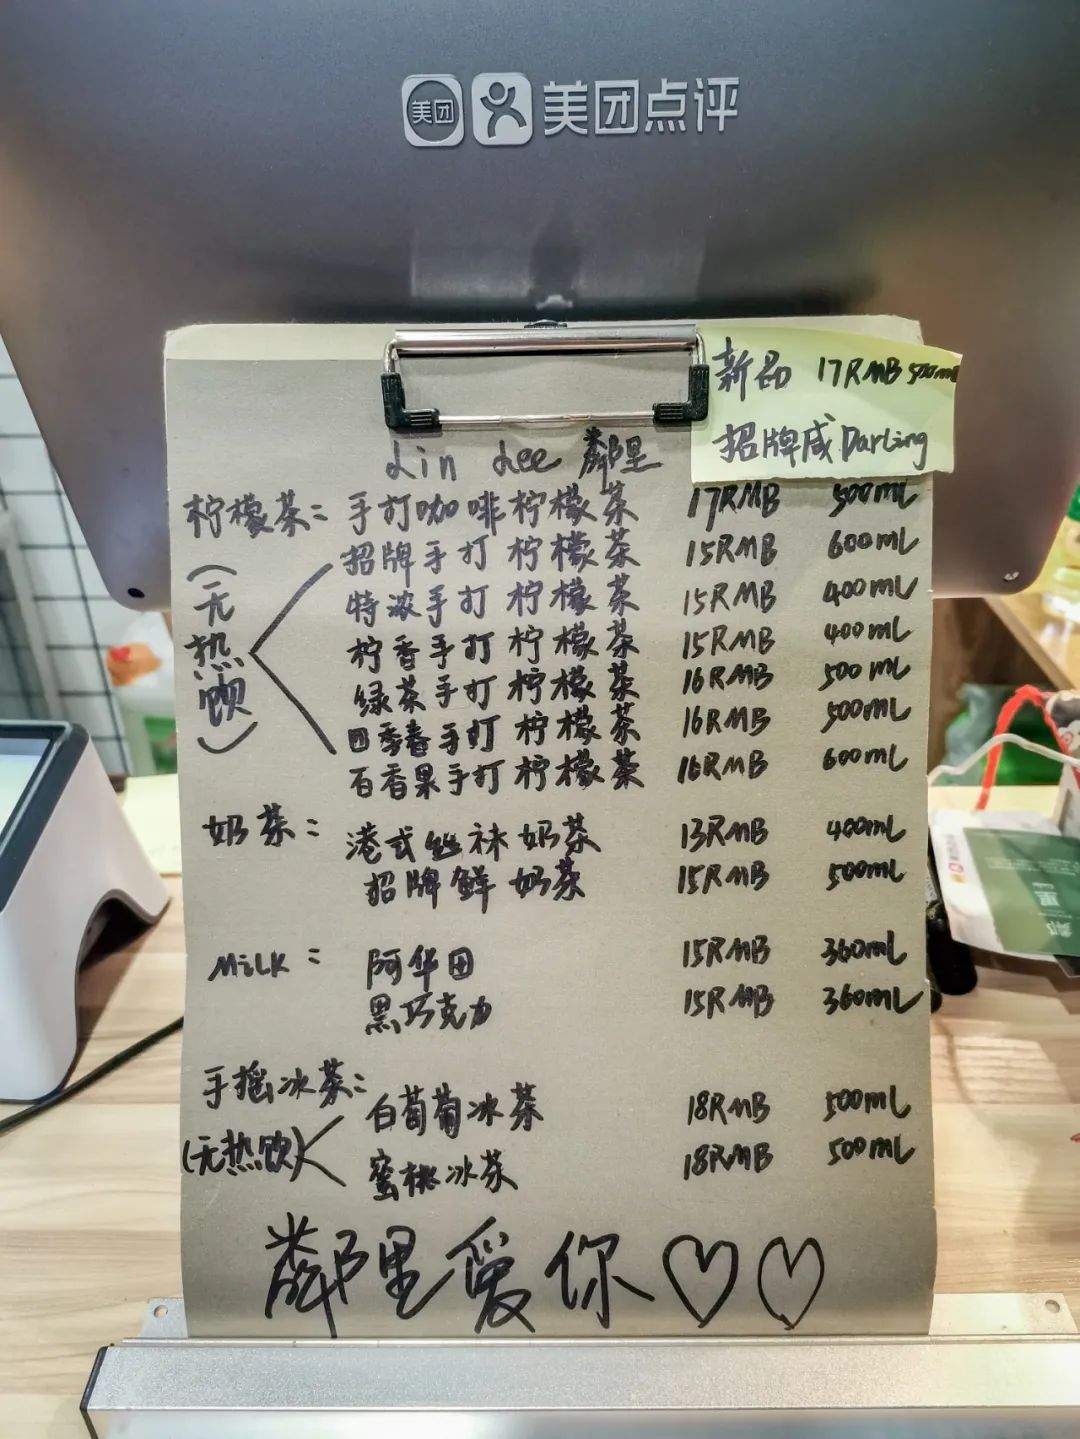 美团 美团点评
新品 17RMB 500mL
招牌咸Darling
Lin Lee 鄰里
柠檬茶: 手打咖啡柠檬茶 17RMB 500mL
(无热饮) 招牌手打柠檬茶 15RMB 600mL
特浓手打柠檬茶 15RMB 400mL
柠香手打柠檬茶 15RMB 400mL
绿茶手打柠檬茶 16RMB 500mL
四季春手打柠檬茶 16RMB 500mL
百香果手打柠檬茶 16RMB 600mL
奶茶: 港式丝袜奶茶 13RMB 400mL
招牌鲜奶茶 15RMB 500mL
MiLK: 阿华田 15RMB 360mL
黑巧克力 15RMB 360mL
手摇冰茶:
白葡萄冰茶 18RMB 500mL
(无热饮) 蜜桃冰茶 18RMB 500mL
鄰里爱你♡♡